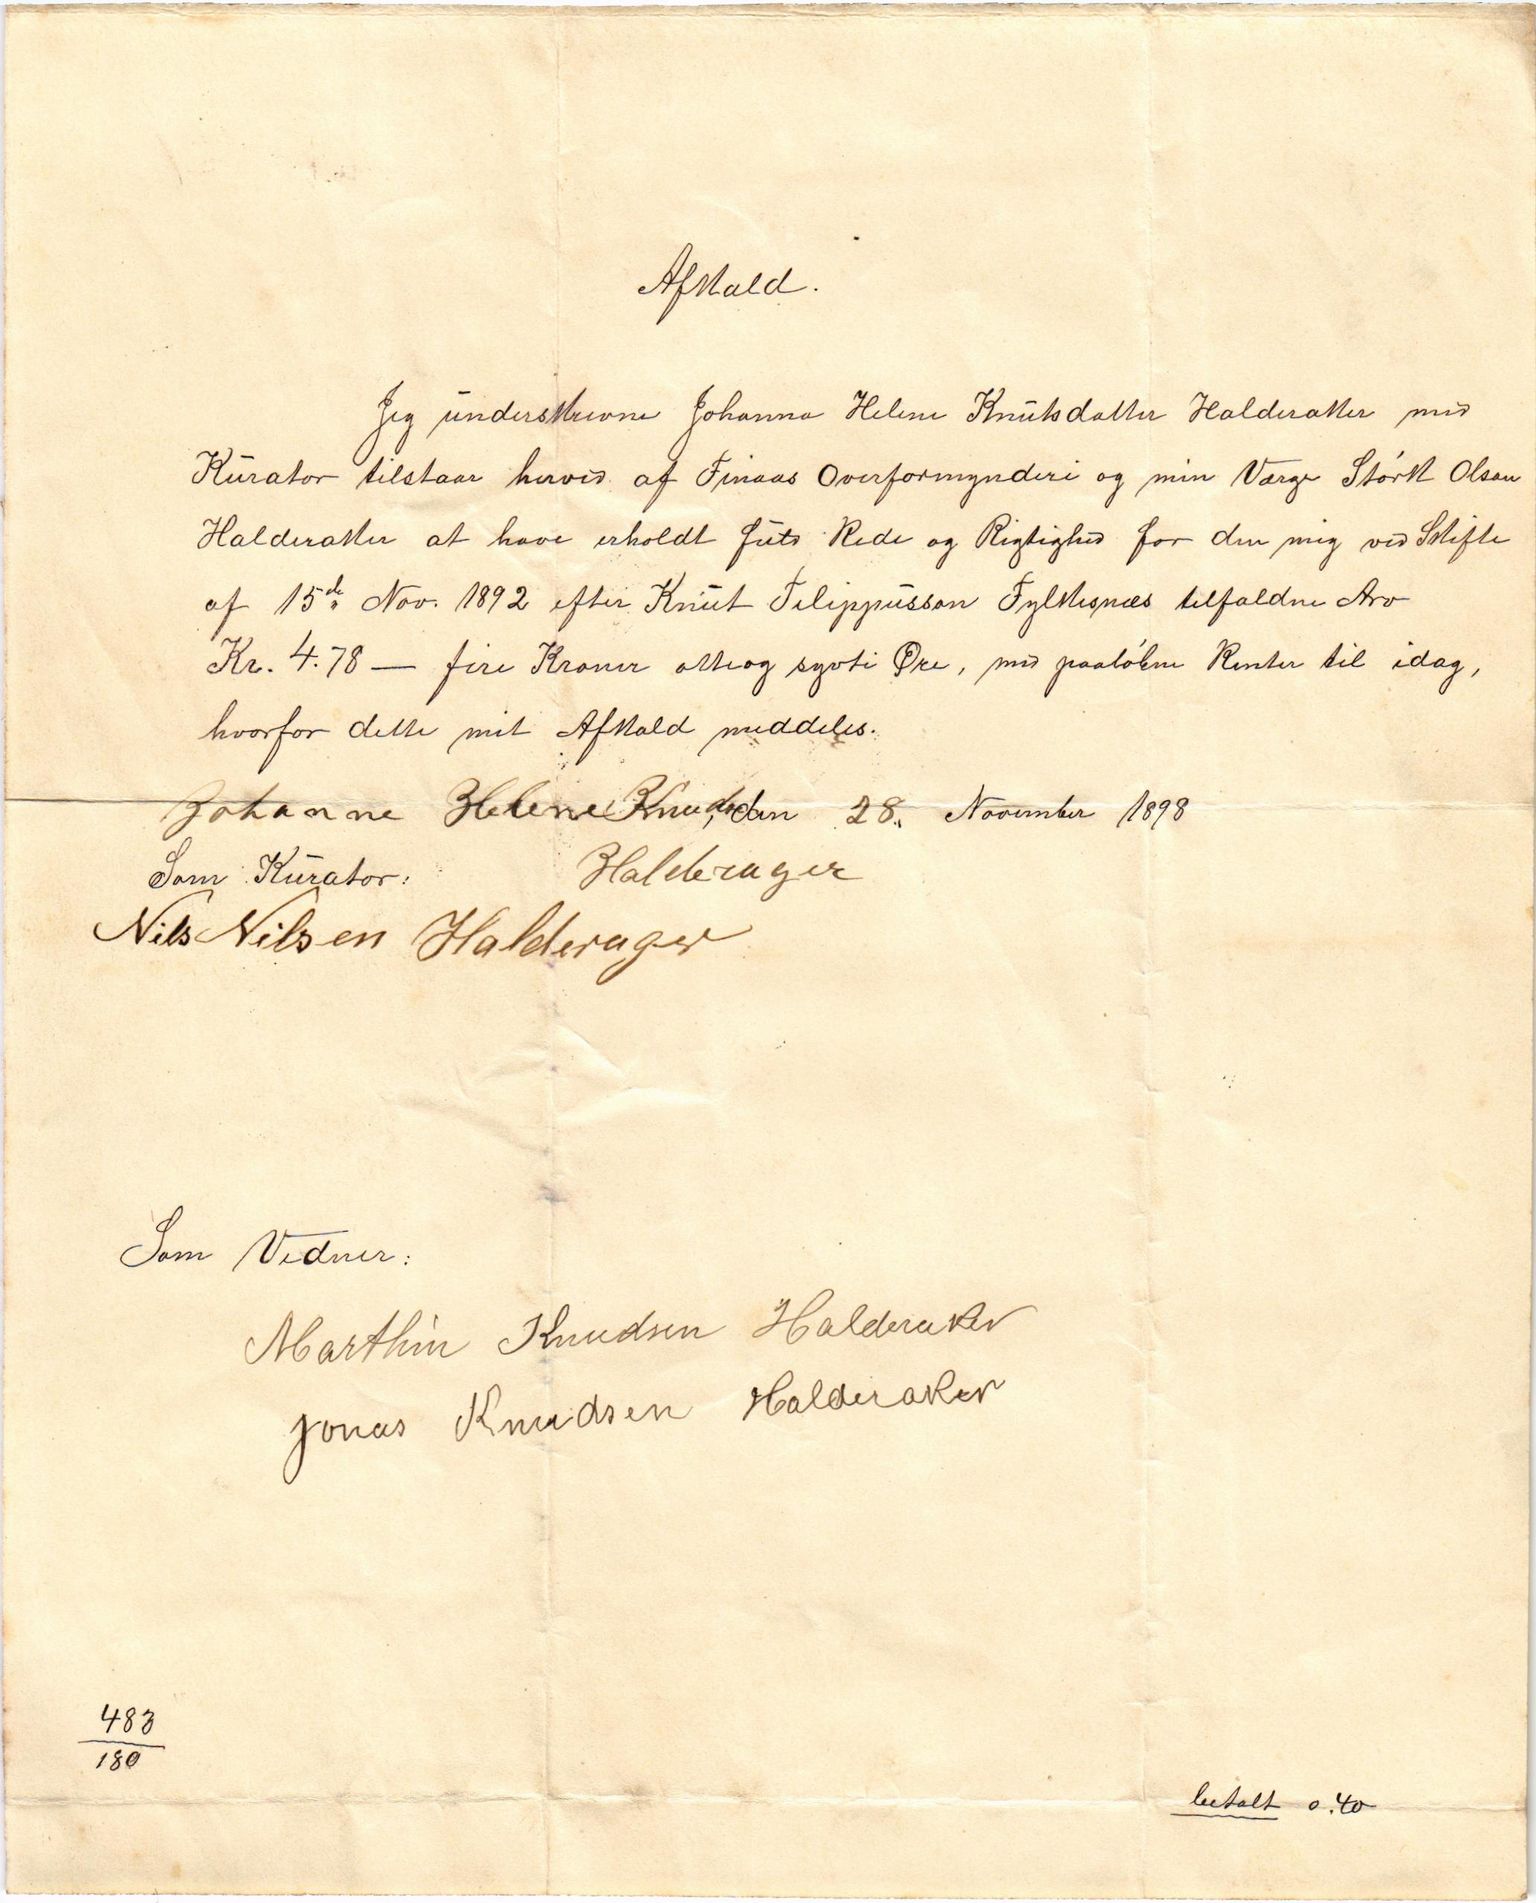 Afkald.
Jeg underskrevne Johanna Helene Knutsdatter Halderaker med
Kurator tilstaar herved af Finaas Overformynderi og min Værge Störk Olson
Halderaker at have erholdt fuld Rede og Rigtighed for den mig ved Skifte
af 15de Nov. 1892 efter Knut Filippusson Fylkesnæs tilfaldne Arv
Kr. 4.78 — fire Kroner otteog sytti Øre, med paalöbne Renter til idag,
hvorfor dette mit Afkald meddeles.
Johanne Helene Knuds, den 28. November 1898
Som Kurator: Halderager
Nils Nilsen Halderager
Som Vidner:
Marthin Knudsen Halderaker
Jonas Knudsen Halderaker
483
180
betalt 0.40